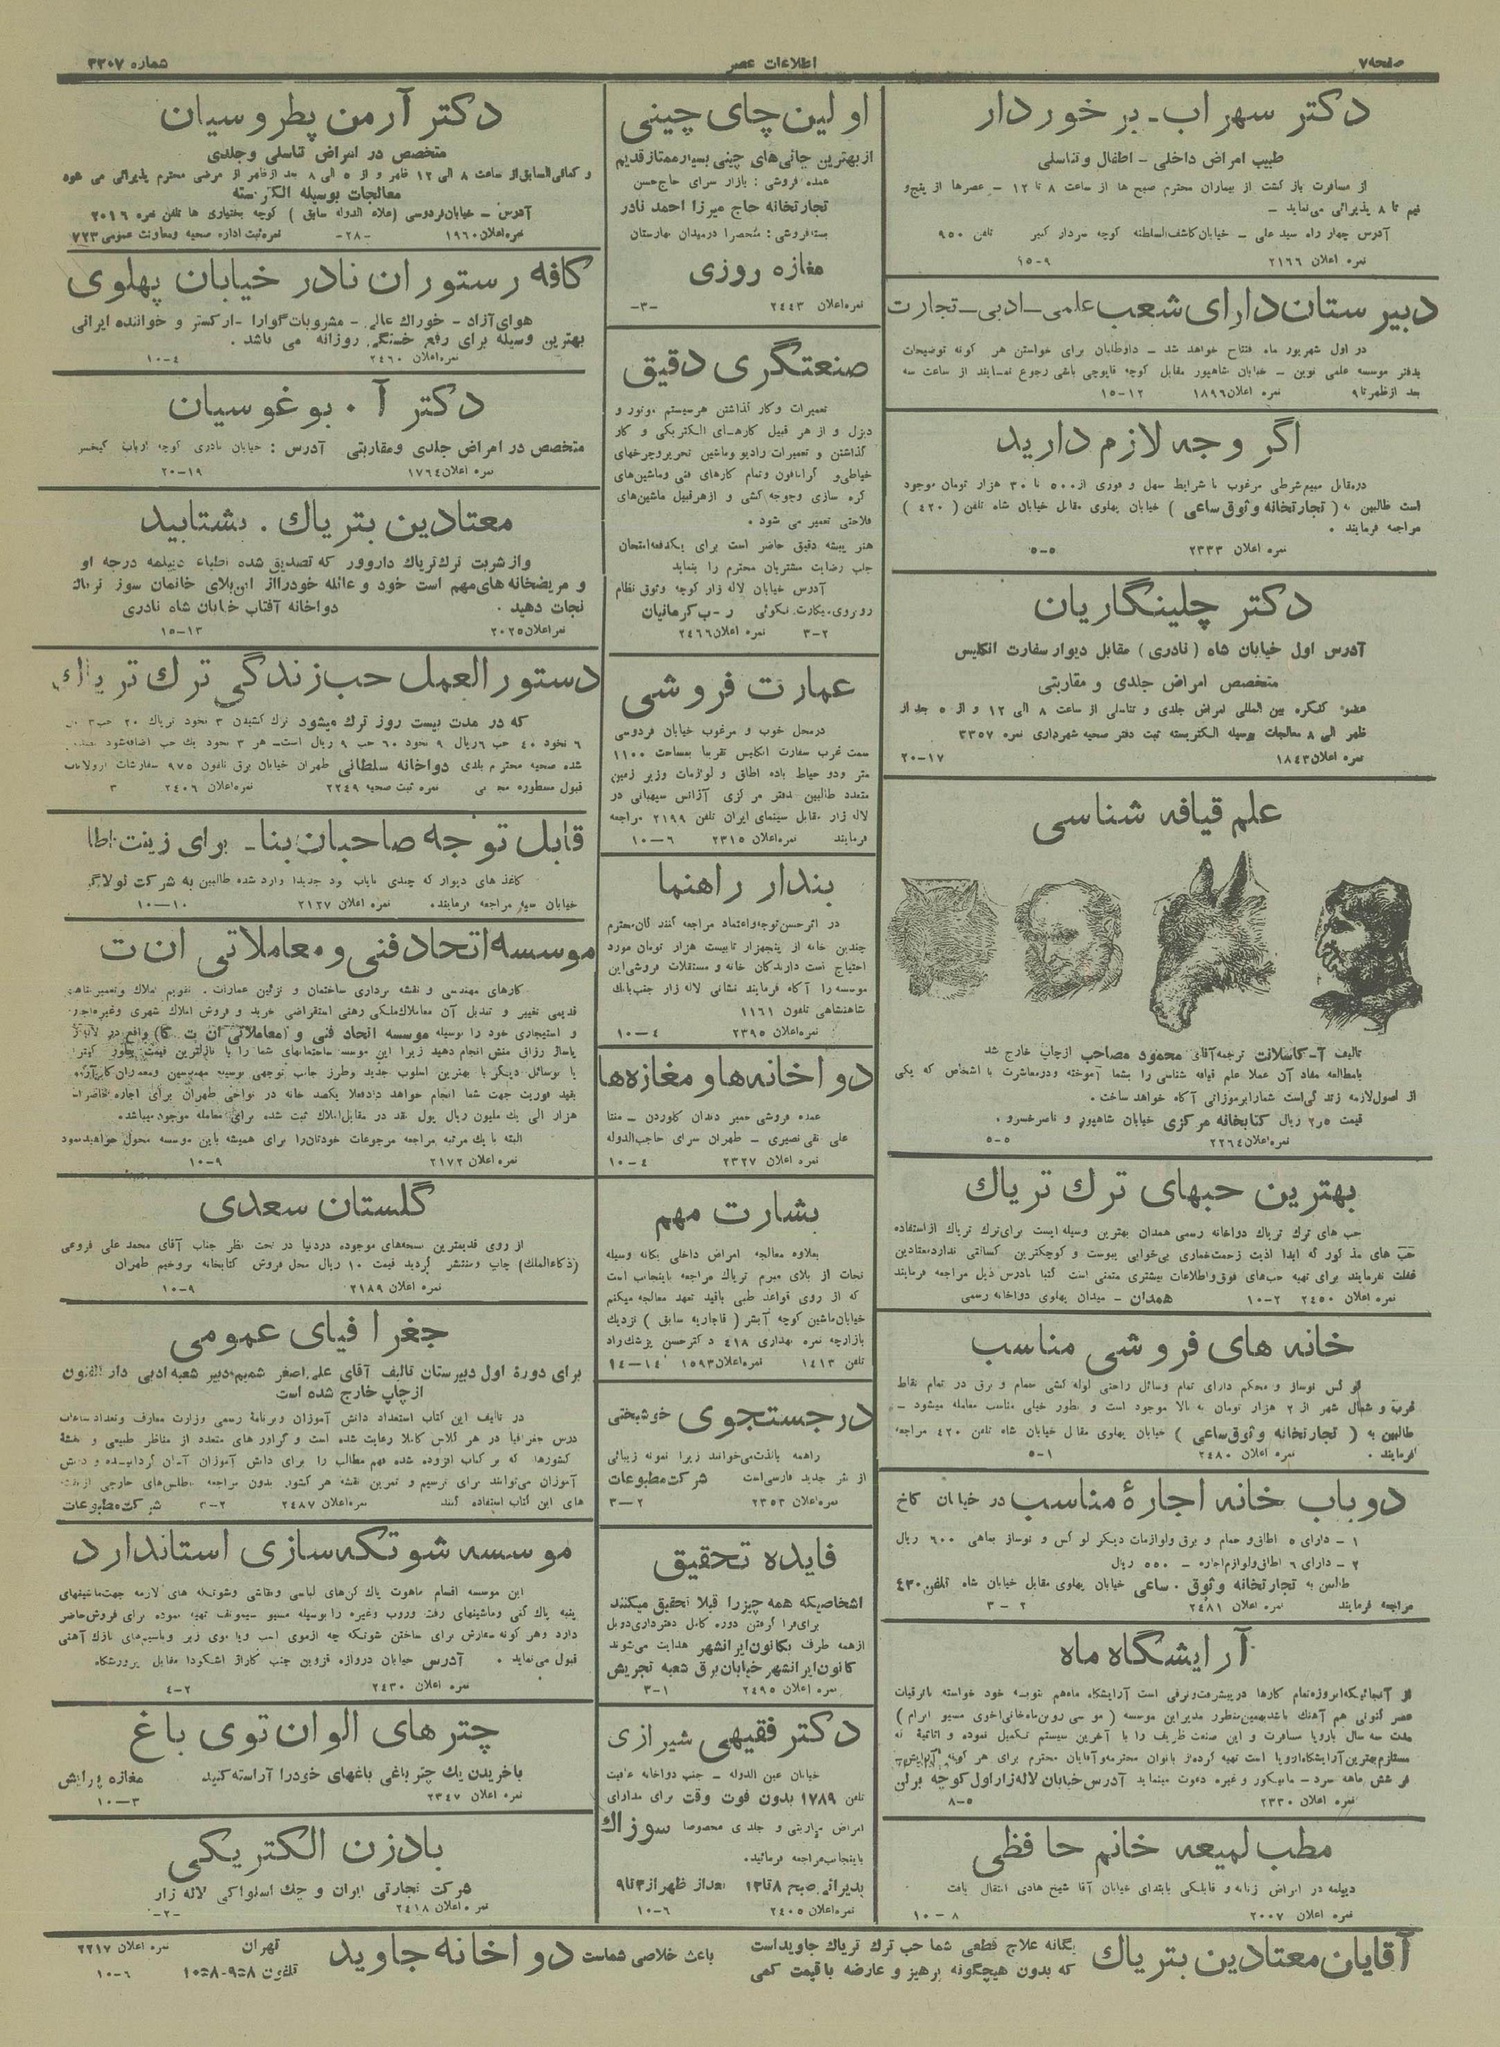 صفحه ۷
اطلاعات عصر
شماره ۳۳۰۷
دکتر سهراب - برخوردار
طبیب امراض داخلی - اطفال وتناسلی
از مسافرت باز گشت از بیماران محترم صبح ها از ساعت ۸ تا ۱۲ - عصرها از پنج و
نیم تا ۸ پذیرائی می نماید -
آدرس چهار راه سید علی - خیابان کاشف السلطنه کوچه سردار کبیر تلفن ۹۵۰
نمره اعلان ۲۱۶۶ ۹-۱۵
دبیرستان دارای شعب علمی - ادبی - تجارت
در اول شهریور ماه افتتاح خواهد شد - داوطلبان برای خواستن هر گونه توضیحات
بدفتر موسسه علمی نوین - خیابان شاهپور مقابل کوچه قاپوچی باشی رجوع نمایند از ساعت سه
بعد ازظهر تا ۹ نمره اعلان ۱۸۹۶ ۱۲-۱۵
اگر وجه لازم دارید
درمقابل بیع شرطی مرغوب با شرایط سهل و فوری از ۵۰۰ تا ۳۰ هزار تومان موجود
است طالبین به ( تجارتخانه وثوق ساعی ) خیابان پهلوی مقابل خیابان شاه تلفن ( ۴۲۰ )
مراجعه فرمایند .
نمره اعلان ۲۳۳۳ ۵-۵
دکتر چلینگاریان
آدرس اول خیابان شاه ( نادری ) مقابل دیوار سفارت انگلیس
متخصص امراض جلدی و مقاربتی
عضو کنگره بین المللی امراض جلدی و تناسلی از ساعت ۸ الی ۱۲ و از ۵ بعد از
ظهر الی ۸ معالجات بوسیله الکتریسته ثبت دفتر صحیه شهرداری نمره ۳۳۵۷
نمره اعلان ۱۸۴۳ ۱۷-۲۰
علم قیافه شناسی
تالیف آ-کاسلانت ترجمه آقای محمود مصاحب ازچاپ خارج شد
بامطالعه مفاد آن عملا علم قیافه شناسی را بشما آموخته ودرمعاشرت با اشخاص که یکی
از اصول لازمه زندگی است شمارابرموزاتی آگاه خواهد ساخت .
قیمت ۲٫۵ ریال کتابخانه مرکزی خیابان شاهپور و ناصرخسرو .
نمره اعلان ۲۲۶۴ ۵-۵
بهترین حبهای ترک تریاک
حب های ترک تریاک دواخانه رسمی همدان بهترین وسیله ایست برای ترک تریاک ازاستفاده
حب های مذکور که ابدا اذیت زحمت خماری بی خوابی یبوست و کوچکترین کسالتی ندارد معتادین
غفلت نفرمایند برای تهیه حب های فوق واطلاعات بیشتری متمنی است کتبا بادرس ذیل مراجعه فرمایند
نمره اعلان ۲۴۵۰ ۲-۱۰ همدان - میدان پهلوی دواخانه رسمی
خانه های فروشی مناسب
لوکس نوساز و محکم دارای تمام وسائل راحتی لوله کشی حمام و برق در تمام نقاط
غرب و شمال شهر از ۲ هزار تومان به بالا موجود است و بطور خیلی مناسب معامله میشود -
طالبین به ( تجارتخانه وثوق ساعی ) خیابان پهلوی مقابل خیابان شاه تلفن ۴۲۰ مراجعه
فرمایند . نمره اعلان ۲۴۸۰ ۱-۵
دوباب خانه اجارهٔ مناسب در خیابان کاخ
۱ - دارای ۵ اطاق و حمام و برق ولوازمات دیگر لوکس و نوساز ماهی ۶۰۰ ریال
۲ - دارای ۶ اطاق ولوازم اجاره - ۵۵۰ ریال
طالبین به تجارتخانه وثوق . ساعی خیابان پهلوی مقابل خیابان شاه تلفن ۴۳۰
مراجعه فرمایند نمره اعلان ۲۴۸۱ ۲-۳
آرایشگاه ماه
از آنجائیکه امروزه تمام کارها در پیشرفت وترقی است آرایشگاه ماه هم بنوبه خود خواسته باترقیات
عصر کنونی هم آهنگ باشد بهمین منظور مدیر این موسسه
مدت سه سال باروپا مسافرت و این صنعت ظریف را با آخرین سیستم تکمیل نموده و اثاثیه که
مستلزم بهترین آرایشگاه اروپا است تهیه کرده از بانوان محترمه و آقایان محترم برای هر گونه آرایش
فر شش ماهه سرد - مانیکور و غیره دعوت مینماید آدرس خیابان لاله زار اول کوچه برلن
نمره اعلان ۲۳۳۰ ۵-۸
مطب لمیعه خانم حافظی
دیپلمه در امراض زنانه و قابلگی بابتدای خیابان آقا شیخ هادی انتقال یافت
نمره اعلان ۲۰۰۷ ۸-۱۰
اولین چای چینی
از بهترین چائی های چینی بسیار ممتاز قدیم
عمده فروشی : بازار سرای حاج حسن
تجارتخانه حاج میرزا احمد نادر
بسته فروشی : منحصرا درمیدان بهارستان
مغازه روزی
نمره اعلان ۲۴۴۳ -۳-
صنعتگری دقیق
تعمیرات وکار گذاشتن هرسیستم موتور و
دیزل و از هر قبیل کارهای الکتریکی و کار
گذاشتن و تعمیرات رادیو وماشین تحریر وچرخهای
خیاطی و گرامافون وتمام کارهای فنی وماشین های
کره سازی وجوجه کشی و ازهر قبیل ماشین های
فلاحتی تعمیر می شود .
هنر پیشه دقیق حاضر است برای یکدفعه امتحان
جلب رضایت مشتریان محترم را بنماید
آدرس خیابان لاله زار کوچه وثوق نظام
روبروی ر-ب کرمانیان
۲-۳ نمره اعلان ۲۴۶۶
عمارت فروشی
درمحل خوب و مرغوب خیابان فردوسی
سمت غرب سفارت انگلیس تقریبا بمساحت ۱۱۰۰
متر ودو حیاط باده اطاق و لوازمات وزیر زمین
متعدد طالبین بدفتر مرکزی آژانس سپهبانی در
لاله زار مقابل سینمای ایران تلفن ۲۱۹۹ مراجعه
فرمایند نمره اعلان ۲۳۱۵ ۶-۱۰
بندار راهنما
در اثر حسن توجه واعتماد مراجعه کنندگان محترم
چندین خانه از پنجهزار تابیست هزار تومان مورد
احتیاج است دارندگان خانه و مستقلات فروشی این
موسسه را آگاه فرمایند نشانی لاله زار جنب بانک
شاهنشاهی تلفون ۱۱۶۱
نمره اعلان ۲۳۹۵ ۴-۱۰
دواخانه ها و مغازه ها
عمده فروشی خمیر دندان کلوردن - منتا
علی نقی نصیری - طهران سرای حاجب الدوله
نمره اعلان ۲۳۲۷ ۴-۱۰
بشارت مهم
بعلاوه معالجه امراض داخلی یگانه وسیله
نجات از بلای مبرم تریاک مراجعه باینجانب است
که از روی قواعد طبی باقید تعهد معالجه میکنم
خیابان ماشین کوچه آبشر ( قاجاریه سابق ) نزدیک
بازارچه نمره بهداری ۴۱۸ دکترحسن پزشک راد
تلفن ۱۴۱۳ نمره اعلان ۱۵۹۳ ۱۴-۱۴
درجستجوی خوشبختی
راهمه بالذت می خوانند زیرا نمونه زیبائی
از نثر جدید فارسی است شرکت مطبوعات
نمره اعلان ۲۳۵۳ ۲-۳
فایده تحقیق
اشخاصیکه همه چیز را قبلا تحقیق میکنند
برای فرا گرفتن دوره کامل دفترداری دوبل
از همه طرف بکانون ایرانشهر هدایت می شوند
کانون ایرانشهر خیابان برق شعبه تجریش
نمره اعلان ۲۴۹۵ ۱-۳
دکتر فقیهی شیرازی
خیابان عین الدوله - جنب دواخانه عافیت
تلفن ۱۷۸۹ بدون فوت وقت برای مداوای
امراض مقاربتی و جلدی مخصوصا سوزاک
باینجانب مراجعه فرمائید.
پذیرائی صبح ۸ تا ۱۲ بعد از ظهر از ۳ تا ۹
نمره اعلان ۲۴۰۵ ۶-۱۰
دکتر آرمن پطروسیان
متخصص در امراض تناسلی وجلدی
و کمافی السابق از ساعت ۸ الی ۱۲ ظهر و از ۵ الی ۸ بعد ازظهر از مرضی محترم پذیرائی می شود
معالجات بوسیله الکتریسته
آدرس - خیابان فردوسی (علاء الدوله سابق ) کوچه بختیاری ها تلفن نمره ۲۰۱۶
نمره اعلان ۱۹۶۰ -۲۸- نمره ثبت اداره صحیه ومعاونت عمومی ۷۲۳
کافه رستوران نادر خیابان پهلوی
هوای آزاد - خوراک عالی - مشروبات گوارا - ارکستر و خواننده ایرانی
بهترین وسیله برای رفع خستگی روزانه می باشد .
نمره اعلان ۲۴۶۰ ۴-۱۰
دکتر آ . بوغوسیان
متخصص در امراض جلدی ومقاربتی آدرس : خیابان نادری کوچه ارباب کیخسر
نمره اعلان ۱۷۶۴ ۱۹-۲۰
معتادین بتریاک . بشتابید
واز شربت ترک تریاک داروور که تصدیق شده اطباء دیپلمه درجه او
و مریضخانه های مهم است خود و عائله خودرا از این بلای خانمان سوز تریاک
نجات دهید . دواخانه آفتاب خیابان شاه نادری
نمره اعلان ۲۰۲۵ ۱۳-۱۵
دستورالعمل حب زندگی ترک تریاک
که در مدت بیست روز ترک میشود ترک کشیدن ۳ نخود تریاک ۲۰ حب ۳
۶ نخود ۴۰ حب ۶ ریال ۹ نخود ۶۰ حب ۹ ریال است - هر ۳ نخود یک حب اضافه شود
شده صحیه محترم بلدی دواخانه سلطانی طهران خیابان برق تلفون ۹۷۵ سفارشات
قبول مسطوره مجانی نمره ثبت صحیه ۲۲۴۹ نمره اعلان ۲۴۰۶ ۳
قابل توجه صاحبان بنا - برای زینت اطا
کاغذ های دیوار که چندی نایاب بود جدیدا وارد شده طالبین به شرکت
خیابان سپه مراجعه فرمایند. نمره اعلان ۲۱۲۷ ۱۰-۱۰
موسسه اتحاد فنی و معاملاتی ان ت
کارهای مهندسی و نقشه برداری ساختمان و تزئین عمارات . تقویم املاک وتعمیر
قدیمی تغییر و تبدیل آن معاملات ملکی رهنی استقراضی خرید و فروش املاک شهری وغیره
و استیجاری خود را بوسیله موسسه اتحاد فنی و (معاملاتی ان ت کا) واقع در
پاساژ رزاق منش انجام دهید زیرا این موسسه ساختمانهای شما را با نازلترین قیمت
با وسائل دیگر با بهترین اسلوب جدید وطرز جالب توجهی توسط مهندسین ومعماران
بقید فوریت جهت شما انجام خواهد داد فعلا یکصد خانه در نواحی طهران برای اجاره
هزار الی یک ملیون ریال پول نقد در مقابل املاک ثبت شده برای معامله موجود میباشد.
البته با یک مرتبه مراجعه مرجوعات خودتان را برای همیشه باین موسسه محول خواهید نمود
نمره اعلان ۲۱۷۲ ۹-۱۰
گلستان سعدی
از روی قدیمترین نسخه های موجوده دردنیا در تحت نظر جناب آقای محمد علی فروغی
(ذکاءالملک) چاپ ومنتشر گردید قیمت ۱۰ ریال محل فروش کتابخانه بروخیم طهران
نمره اعلان ۲۱۸۹ ۹-۱۰
جغرافیای عمومی
برای دورهٔ اول دبیرستان تالیف آقای علی اصغر شمیم دبیر شعبه ادبی دار الفنون
از چاپ خارج شده است
در تالیف این کتاب استعداد دانش آموزان وبرنامهٔ رسمی وزارت معارف وتعداد ساعات
درس جغرافیا در هر کلاس کاملا رعایت شده است و گراور های متعدد از مناظر طبیعی و نقشهٔ
کشورها که بر کتاب افزوده شده فهم مطالب را برای دانش آموزان آسان گردانیده و دانش
آموزان می توانند برای ترسیم و تمرین نقشه هر کشور بدون مراجعه باطلس های خارجی از نقشه
های این کتاب استفاده کنند نمره اعلان ۲۴۸۷ ۲-۳ شرکت مطبوعات
موسسه شوتکه سازی استاندارد
این موسسه اقسام ماهوت پاک کن های لباسی ونقاشی وشوتکه های لازمه جهت ماشینهای
پنبه پاک کنی وماشینهای رفت وروب وغیره را بوسیله تهیه نموده برای فروش حاضر
دارد وهر گونه سفارش برای ساختن شوتکه چه ازموی اسب ویا موی زبر وباسیم های نازک آهنی
قبول می نماید . آدرس خیابان دروازه قزوین جنب گاراژ اشکودا مقابل پرورشگاه
نمره اعلان ۲۴۳۰ ۲-۴
چترهای الوان توی باغ
باخریدن یک چتر باغی باغهای خودرا آراسته کنید مغازه پیرایش
نمره اعلان ۲۳۴۷ ۳-۱۰
بادزن الکتریکی
شرکت تجارتی ایران و چک اسلواکی لاله زار
نمره اعلان ۲۴۱۸ -۲-
آقایان معتادین بتریاک
یگانه علاج قطعی شما حب ترک تریاک جاوید است
که بدون هیچگونه پرهیز و عارضه باقیمت کمی
باعث خلاصی شماست دواخانه جاوید
تهران نمره اعلان ۲۲۱۷
تلفون ۹۵۸-۱۰۵۸ ۶-۱۰